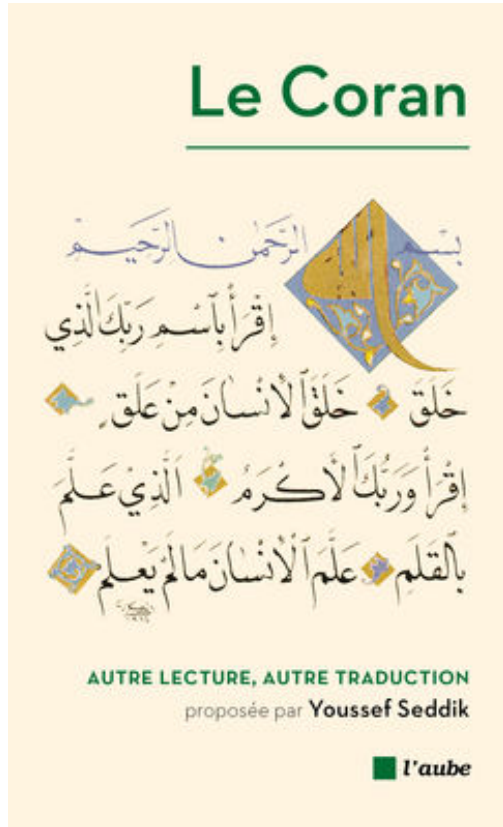 Le Coran
بسم الله الرحمن الرحيم
إِقْرَأْ بِٱسْمِ رَبِّكَ الَّذِي
خَلَقَ خَلَقَ ٱلْاِنْسَانَ مِنْ عَلَقٍ
إِقْرَأْ وَرَبُّكَ ٱلْاَكْرَمُ اَلَّذِيْ عَلَّمَ
بِٱلْقَلَمِ عَلَّمَ ٱلْاِنْسَانَ مَا لَمْ يَعْلَمْ
AUTRE LECTURE, AUTRE TRADUCTION
proposée par Youssef Seddik
l'aube